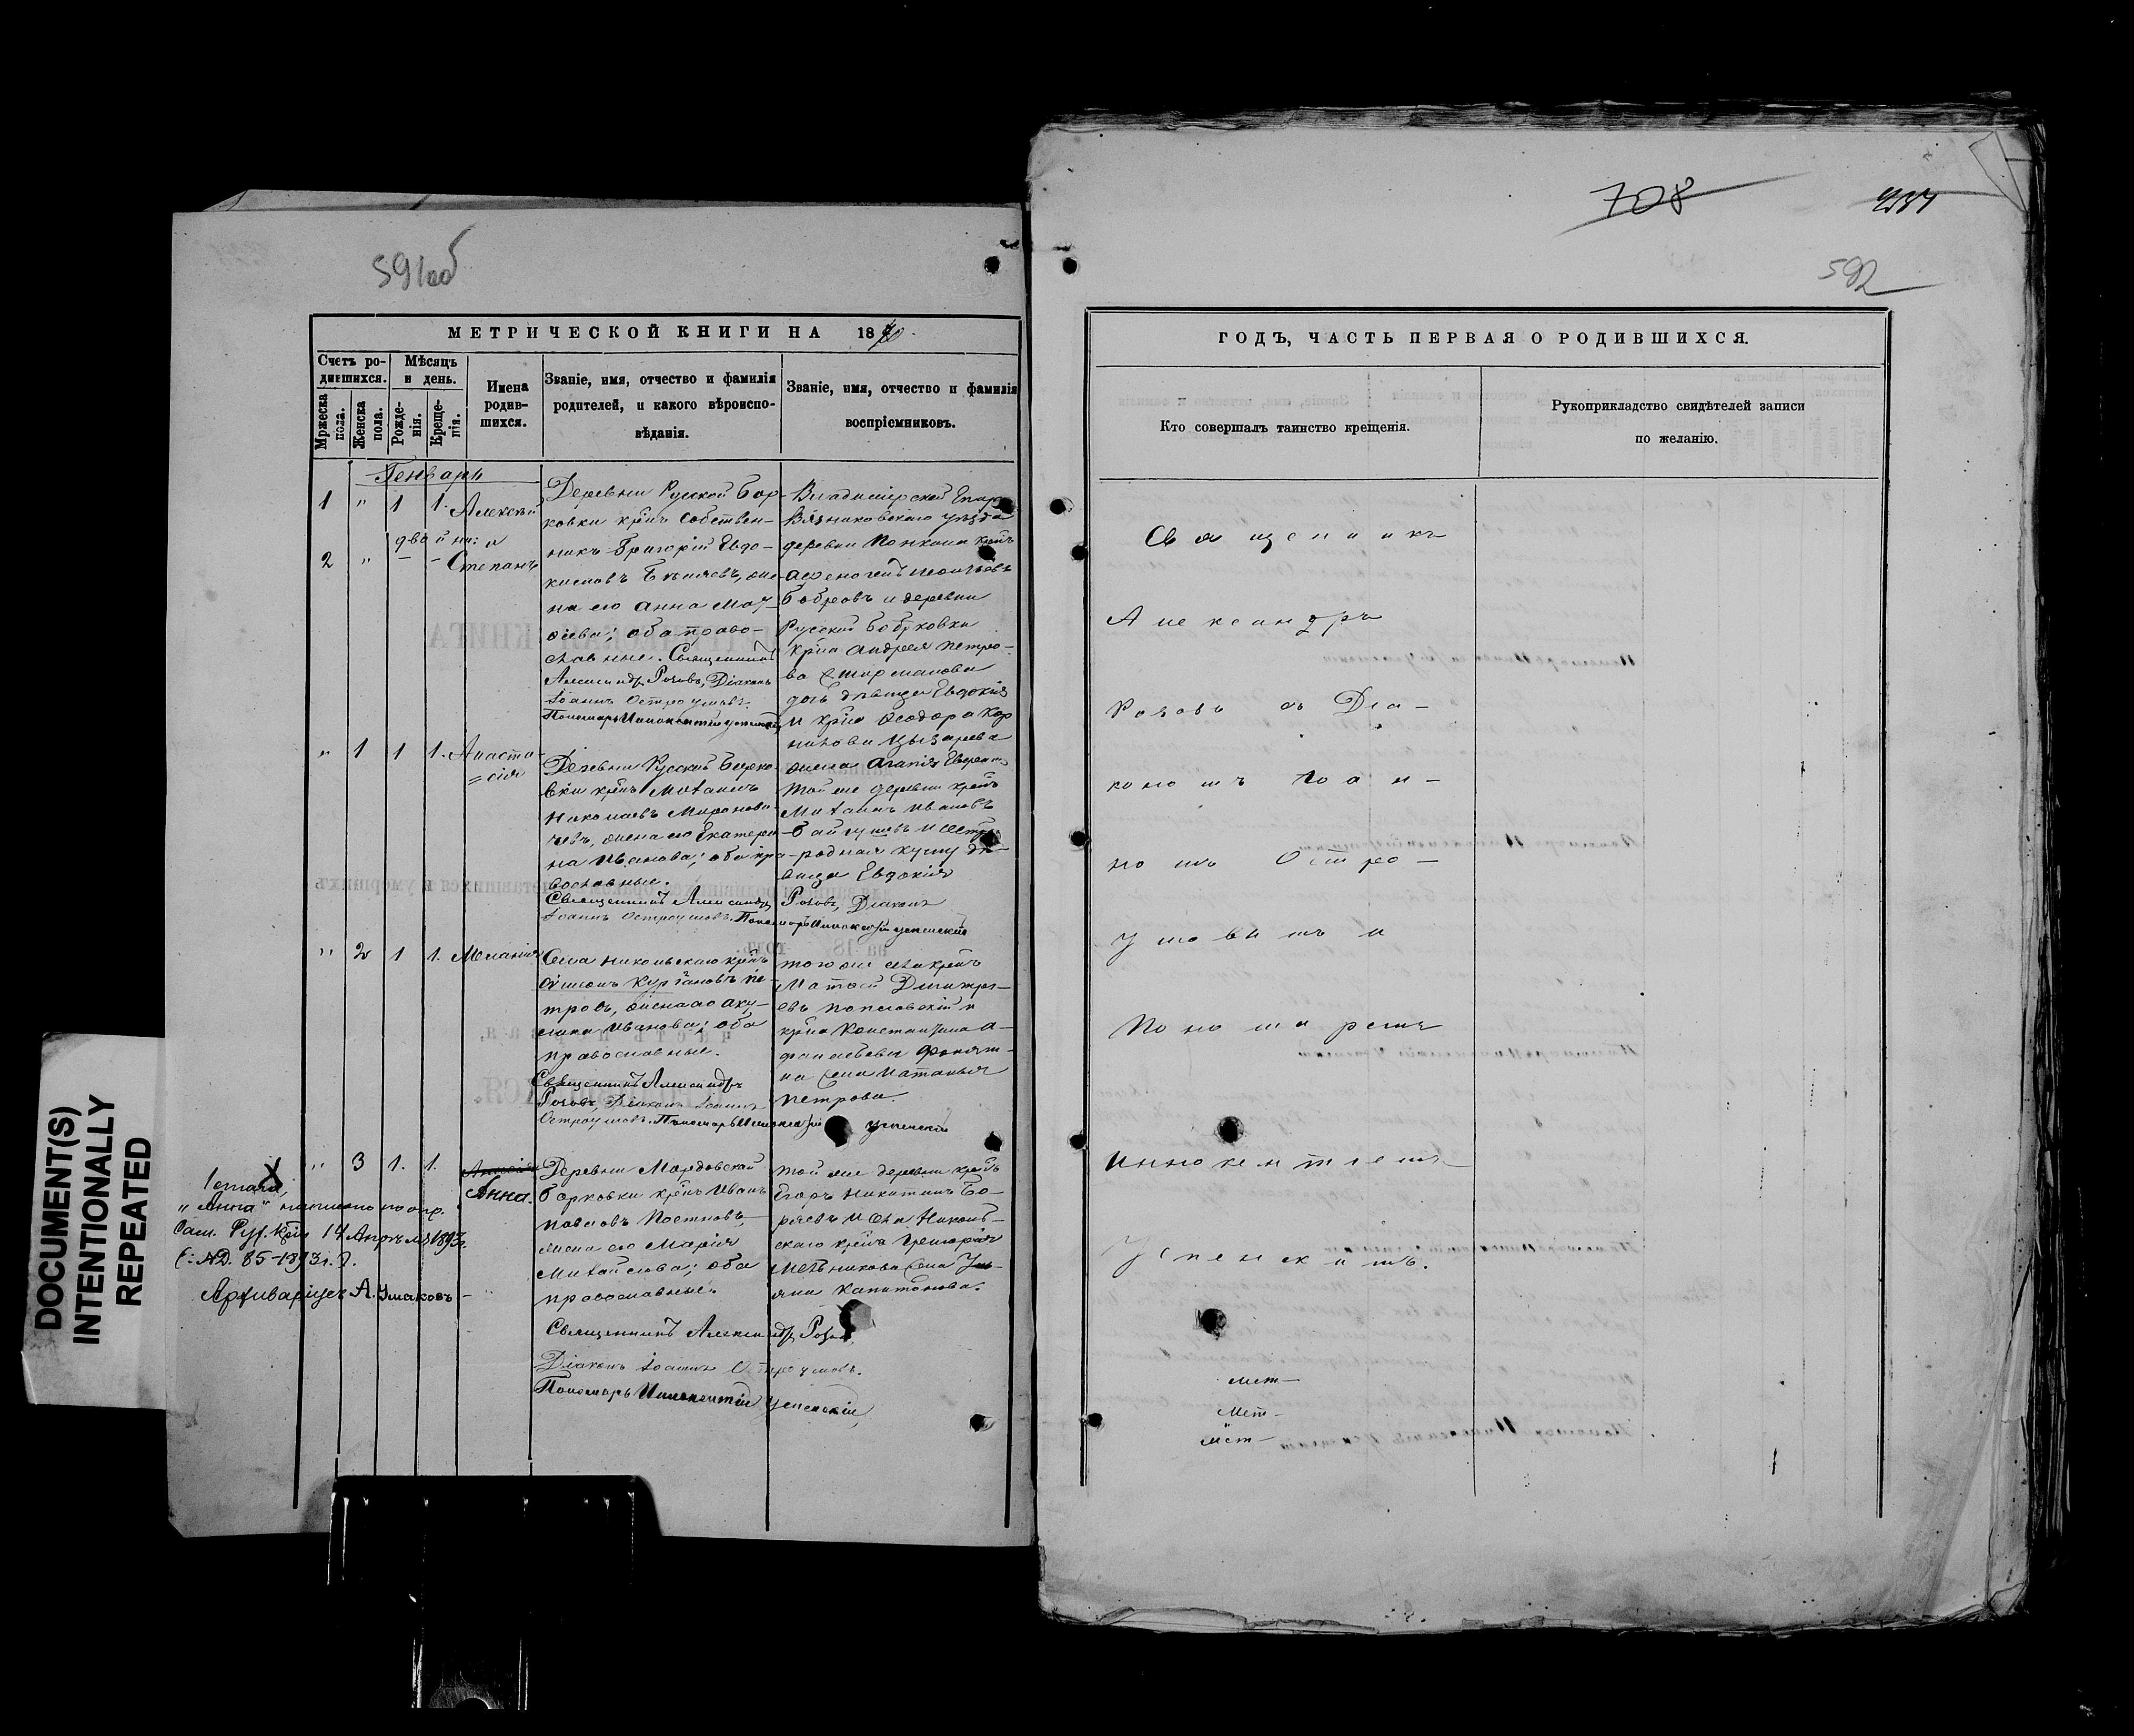 591об
МЕТРИЧЕСКОЙ КНИГИ НА 1870.
Счетъ ро-
дившихся.
Мѣсяцъ
и день.
Мужеска
пола.
Женска
пола.
Рожде-
нія.
Креще-
нія.
Имена
родив-
шихся.
Званіе, имя, отчество и фамилія
родителей, и какого вѣроиспо-
вѣданія.
Званіе, имя, отчество и фамилія
воспріемниковъ.
Генварь
1 " 1 1. Алексѣй
двойни: и
2 " - - Степанъ
Деревни Русской Бор-
ковки крѣнъ собствен-
никъ Григорій Евдо-
кимовъ
на его Анна Мат-
ѳеева; оба право-
славные. Священникъ
Александръ Розовъ, Діаконъ
Іоаннъ Остроумовъ.
Пономарь Иннокентій Успенскій
Владимірской Епар
Вязниковскаго уѣзда
деревни
Бобровъ и деревни
Русской Борковки
крна Андрея Петро-
ва
дочь дѣвица Евдокія
и крна Ѳеодора Кор
нилова
" 1 1 1. Анаста-
=сія
Деревни Русской Борко-
вки крнъ
Николаевъ Миронова-
чевъ, жена его Екатери-
на Иванова; оба пра-
вославные.
Священникъ Александръ Розовъ, Діаконъ
Іоаннъ Остроумовъ. Пономарь Иннокентій Успенскій
жена Агапія
той же деревни крнъ
Ивановъ
и сестра
родная дѣ-
вица Евдокія
" 2 1 1. Меланія
Села Никольскаго крнъ
Симонъ Кургановъ Пе-
тровъ, жена его Аку-
лина Иванова; оба
православные.
Священникъ Александръ
Розовъ, Діаконъ Іоаннъ
Остроумовъ. Пономарь Иннокентій Успенскій
того же села крнъ
Матвѣй Дмитрі-
евъ и
крна Константина А-
фанасьева
на жена Наталья
Петрова.
" 3 1. 1.
Анна.
Деревни Мордовской
Борковки крнъ Иванъ
Павловъ Постновъ,
жена его Марія
Михайлова; оба
православные.
Священникъ Александръ Розовъ,
Діаконъ Іоаннъ Остроумовъ.
Пономарь Иннокентій Успенскій
той же деревни крнъ
Егоръ Никитинъ Бо-
ряевъ и села Николь-
скаго крна Григорія
Мельникова жена Улья-
яна Капитонова.
" Анна" написано по опр.
Сам. Дух. Конс. 14 Апрѣля 1893г.
85-1893г.
Архиваріусъ А. Ушаковъ
DOCUMENT(S)
INTENTIONALLY
REPEATED
708
592
ГОДЪ, ЧАСТЬ ПЕРВАЯ О РОДИВШИХСЯ.
Кто совершалъ таинство крещенія.
Рукоприкладство свидѣтелей записи
по желанію.
Священникъ
Александръ
Розовъ съ Діа-
кономъ Іоан-
номъ Остро-
умовымъ и
Пономаремъ
Иннокентіемъ
Успенскимъ.